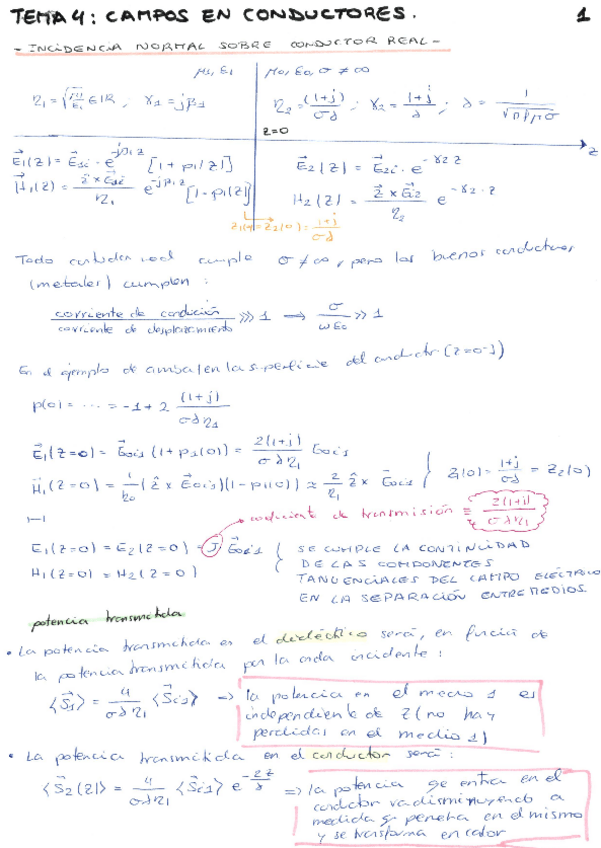 TEMA 4: CAMPOS EN CONDUCTORES. 1
- INCIDENCIA NORMAL SOBRE CONDUCTOR REAL -
μ1, ε1 μ0, ε0, σ ≠ ∞
η1 = √(μ1/ε1) ∈ IR ; γ1 = jβ1 η2 = (1+j)/σδ ; γ2 = (1+j)/δ ; δ = 1/√(πfμσ)
z=0
z
E1(z) = · e^(-jβ1z) [1 + ρ1(z)] E2(z) = · e^(-γ2 z)
H1(z) = /η1 e^(-jβ1z) [1 - ρ1(z)] H2(z) = /η2 e^(-γ2·z)
Z1(0) = Z2(0) = (1+j)/σδ
Todo conductor real cumple σ ≠ ∞, pero los buenos conductores
(metales) cumplen :
corriente de / corriente de desplazamiento >>> 1 → σ/ωε0 >> 1
En el ejemplo de arriba, en la superficie del conductor (z=0)
ρ(0) = ··· = -1 + 2 (1+j)/σδη1
E1(z=0) = E0i1 (1+ρ1(0)) = 2(1+j)/σδη1 E0i1
H1(z=0) = (ẑ × E0i1)(1-ρ1(0)) ≈ 2/η1 ẑ × E0i1 { Z1(0) = (1+j)/σδ = Z2(0)
coeficiente de transmisión ≡ 2(1+j)/σδη1
E1(z=0) = E2(z=0) = E0i1 { SE CUMPLE LA CONTINUIDAD
H1(z=0) = H2(z=0) DE LAS COMPONENTES
TANGENCIALES DEL CAMPO ELÉCTRICO
EN LA SEPARACIÓN ENTRE MEDIOS.
potencia transmitida
• La potencia transmitida en el dieléctrico será, en función de
la potencia transmitida por la onda incidente :
⟨S1⟩ = 4/σδη1 ⟨Si1⟩ ⇒ la potencia en el medio 1 es
independiente de z (no hay
perdidas en el medio 1)
• La potencia transmitida en el conductor será :
⟨S2(z)⟩ = 4/σδη1 ⟨Si1⟩ e^(-2z/δ) ⇒ la potencia que entra en el
conductor va disminuyendo a
medida q penetra en el mismo
y se transforma en calor